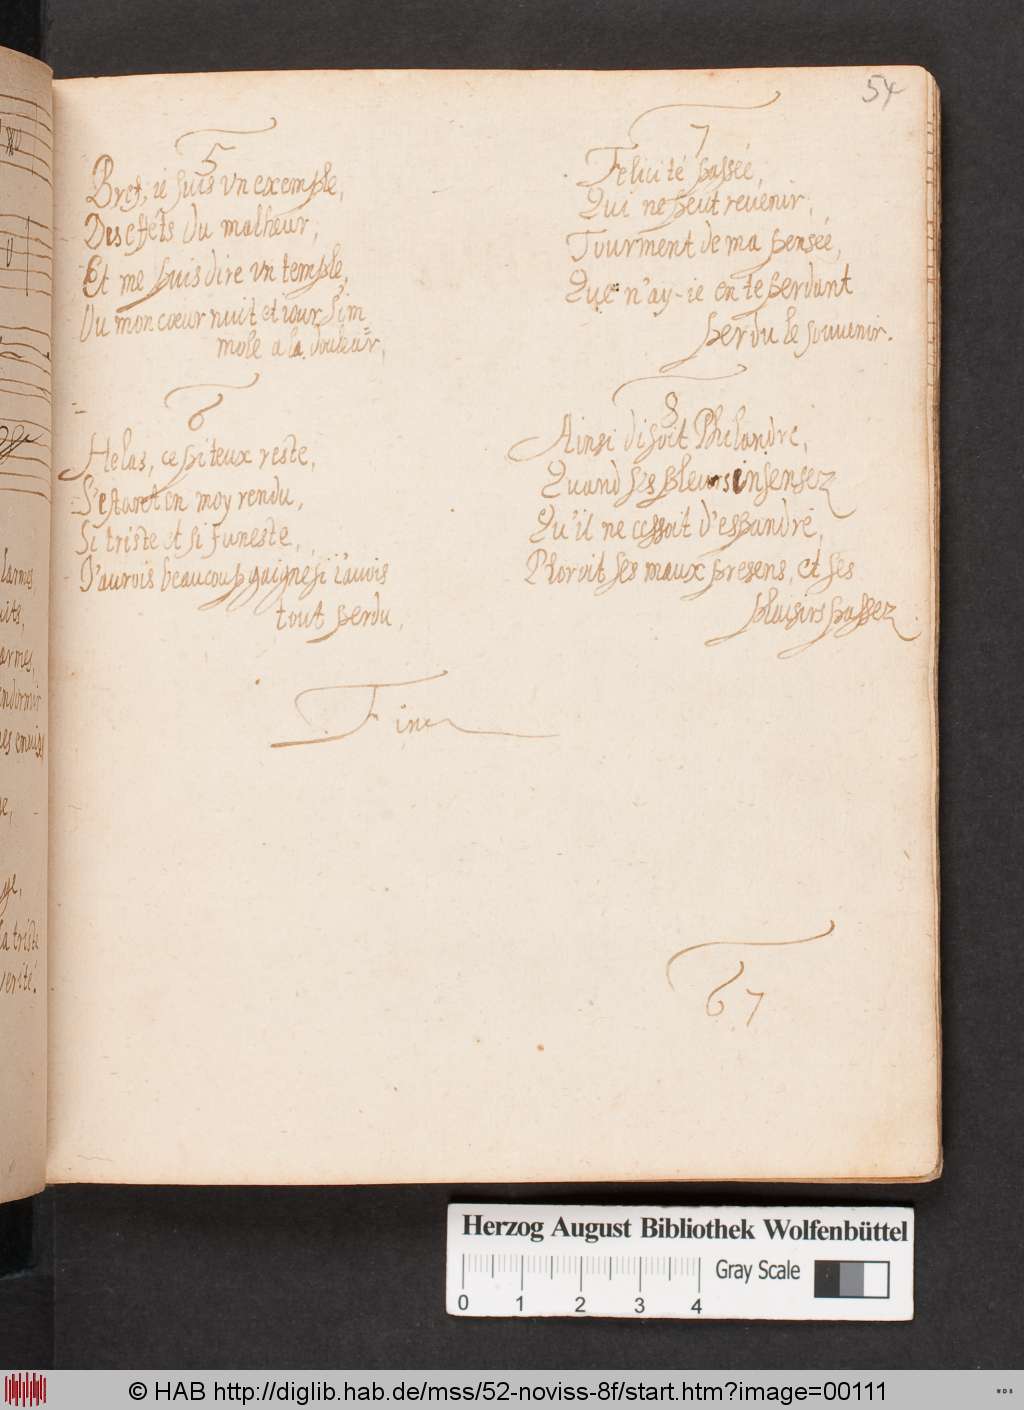 54
5
Bref, ie suis vn exemple,
Des effets du malheur,
Et me puis dire vn temple,
Ou mon coeur nuit et iour s'im=
mole a la douleur,
6
Helas, ce piteux reste,
S'estant en moy rendu,
Si triste et si funeste,
J'aurois beaucoup gaigne si i'auois
tout perdu,
7
Felicité passée,
Qui ne peut reuenir,
Tourment de ma pensée,
Que n'ay-ie en te perdant
perdu le souuenir.
8
Ainsi disoit Philandre,
Quand ses pleurs insensez
Qu'il ne cessoit d'espandre,
Ploroit ses maux presens, et ses
plaisirs passez.
Fine
67
larmes,
uits,
armes,
endormir
es ennuis
ge,
la triste
verité.
Herzog August Bibliothek Wolfenbüttel
0 1 2 3 4
Gray Scale
© HAB http://diglib.hab.de/mss/52-noviss-8f/start.htm?image=00111
WDB